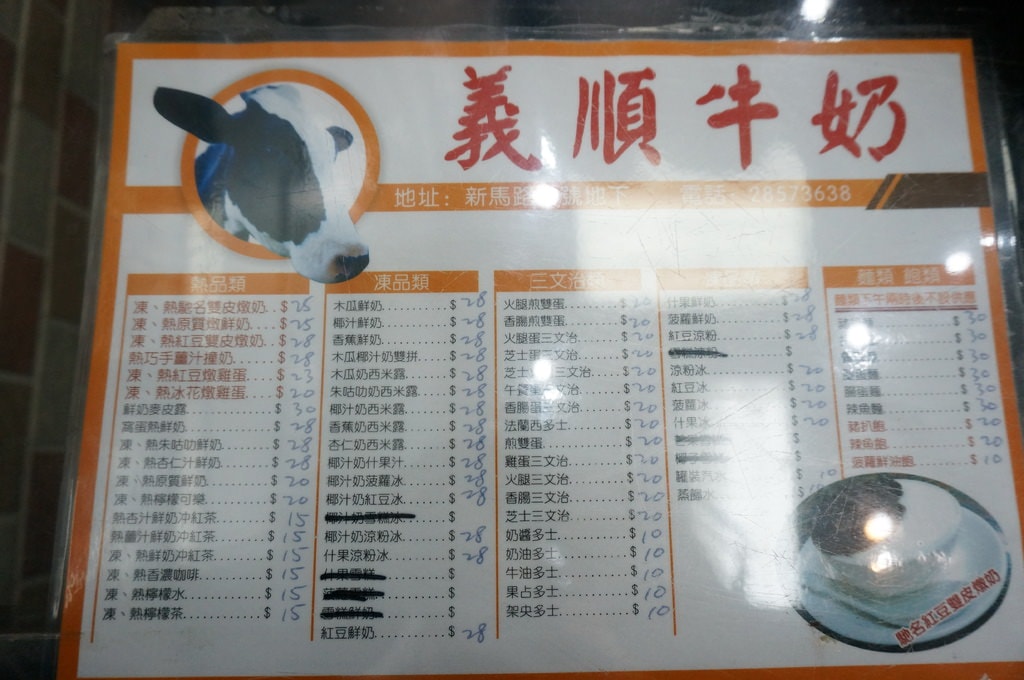 義順牛奶
地址：新馬路 號地下 電話：28573638
熱品類
凍、熱馳名雙皮燉奶 $25
凍、熱原質燉鮮奶 $25
凍、熱紅豆雙皮燉奶 $28
熱巧手薑汁撞奶 $28
凍、熱紅豆燉雞蛋 $23
凍、熱冰花燉雞蛋 $20
鮮奶麥皮露 $30
窩蛋熱鮮奶 $28
凍、熱朱咕叻鮮奶 $28
凍、熱杏仁汁鮮奶 $28
凍、熱原質鮮奶 $20
凍、熱檸檬可樂 $20
熱杏汁鮮奶冲紅茶 $15
熱薑汁鮮奶冲紅茶 $15
凍、熱鮮奶冲紅茶 $15
凍、熱香濃咖啡 $15
凍、熱檸檬水 $15
凍、熱檸檬茶 $15
凍品類
木瓜鮮奶 $28
椰汁鮮奶 $28
香蕉鮮奶 $28
木瓜椰汁奶雙拼 $28
木瓜奶西米露 $28
朱咕叻奶西米露 $28
椰汁奶西米露 $28
香蕉奶西米露 $28
杏仁奶西米露 $28
椰汁奶什果汁 $28
椰汁奶菠蘿冰 $28
椰汁奶紅豆冰 $28
椰汁奶雪糕冰 $
椰汁奶涼粉冰 $28
什果涼粉冰 $28
什果雪糕 $
雪糕鮮奶 $
紅豆鮮奶 $28
三文治
火腿煎雙蛋 $20
香腸煎雙蛋 $20
火腿蛋三文治 $20
芝士蛋三文治 $20
芝士 三文治 $20
午餐 三文治 $20
香腸蛋三文治 $20
法蘭西多士 $20
煎雙蛋 $20
雞蛋三文治 $20
火腿三文治 $20
香腸三文治 $20
芝士三文治 $20
奶醬多士 $10
奶油多士 $10
牛油多士 $10
果占多士 $10
架央多士 $10
什果鮮奶 $28
菠蘿鮮奶 $28
紅豆涼粉 $28
$
涼粉冰 $20
紅豆冰 $20
菠蘿冰 $20
什果冰 $20
罐裝汽水 10
蒸餾水
麵類 飽類
麵類下午兩時後不設供應
$30
$30
$30
$30
腸蛋麵 $30
辣魚麵 $30
豬扒飽 $20
辣魚飽 $20
菠蘿鮮油飽 $10
馳名紅豆雙皮燉奶